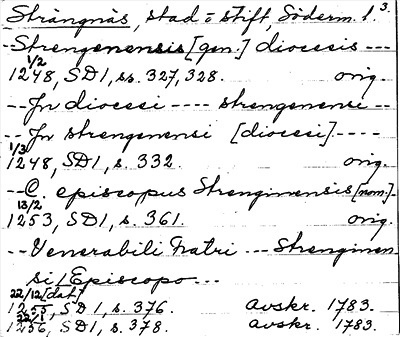 Strängnäs, stad o stift, Söderm. l. 3.
--Strengenensis [gen.] diocesis ---
1/2
1248, SD 1, ss. 327, 328. orig.
--In diocesi ---- strengenensi --
--In strengenensi [diocesi].----
1/3
1248, SD 1, s. 332. orig.
--C. episcopus Strenginensis [nom.]
13/2
1253, SD 1, s. 361. orig.
--Venerabili Patri --- Strenginen-
si Episcopo ---
22/12 [dat.]
1255, SD 1, s. 376. avskr. 1783.
22/1
1256, SD 1, s. 378. avskr. 1783.